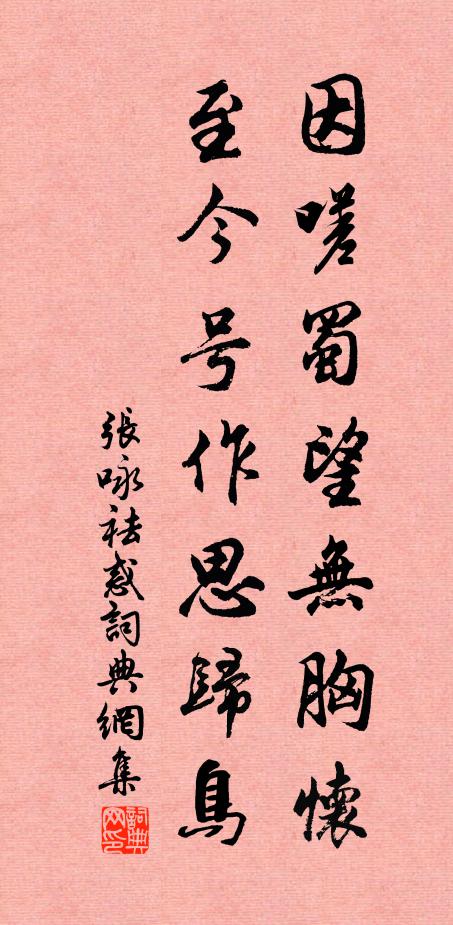 因嗟蜀望無胸懷
至今号作思歸鳥
張咏祛惑詞典網集
詞典网印